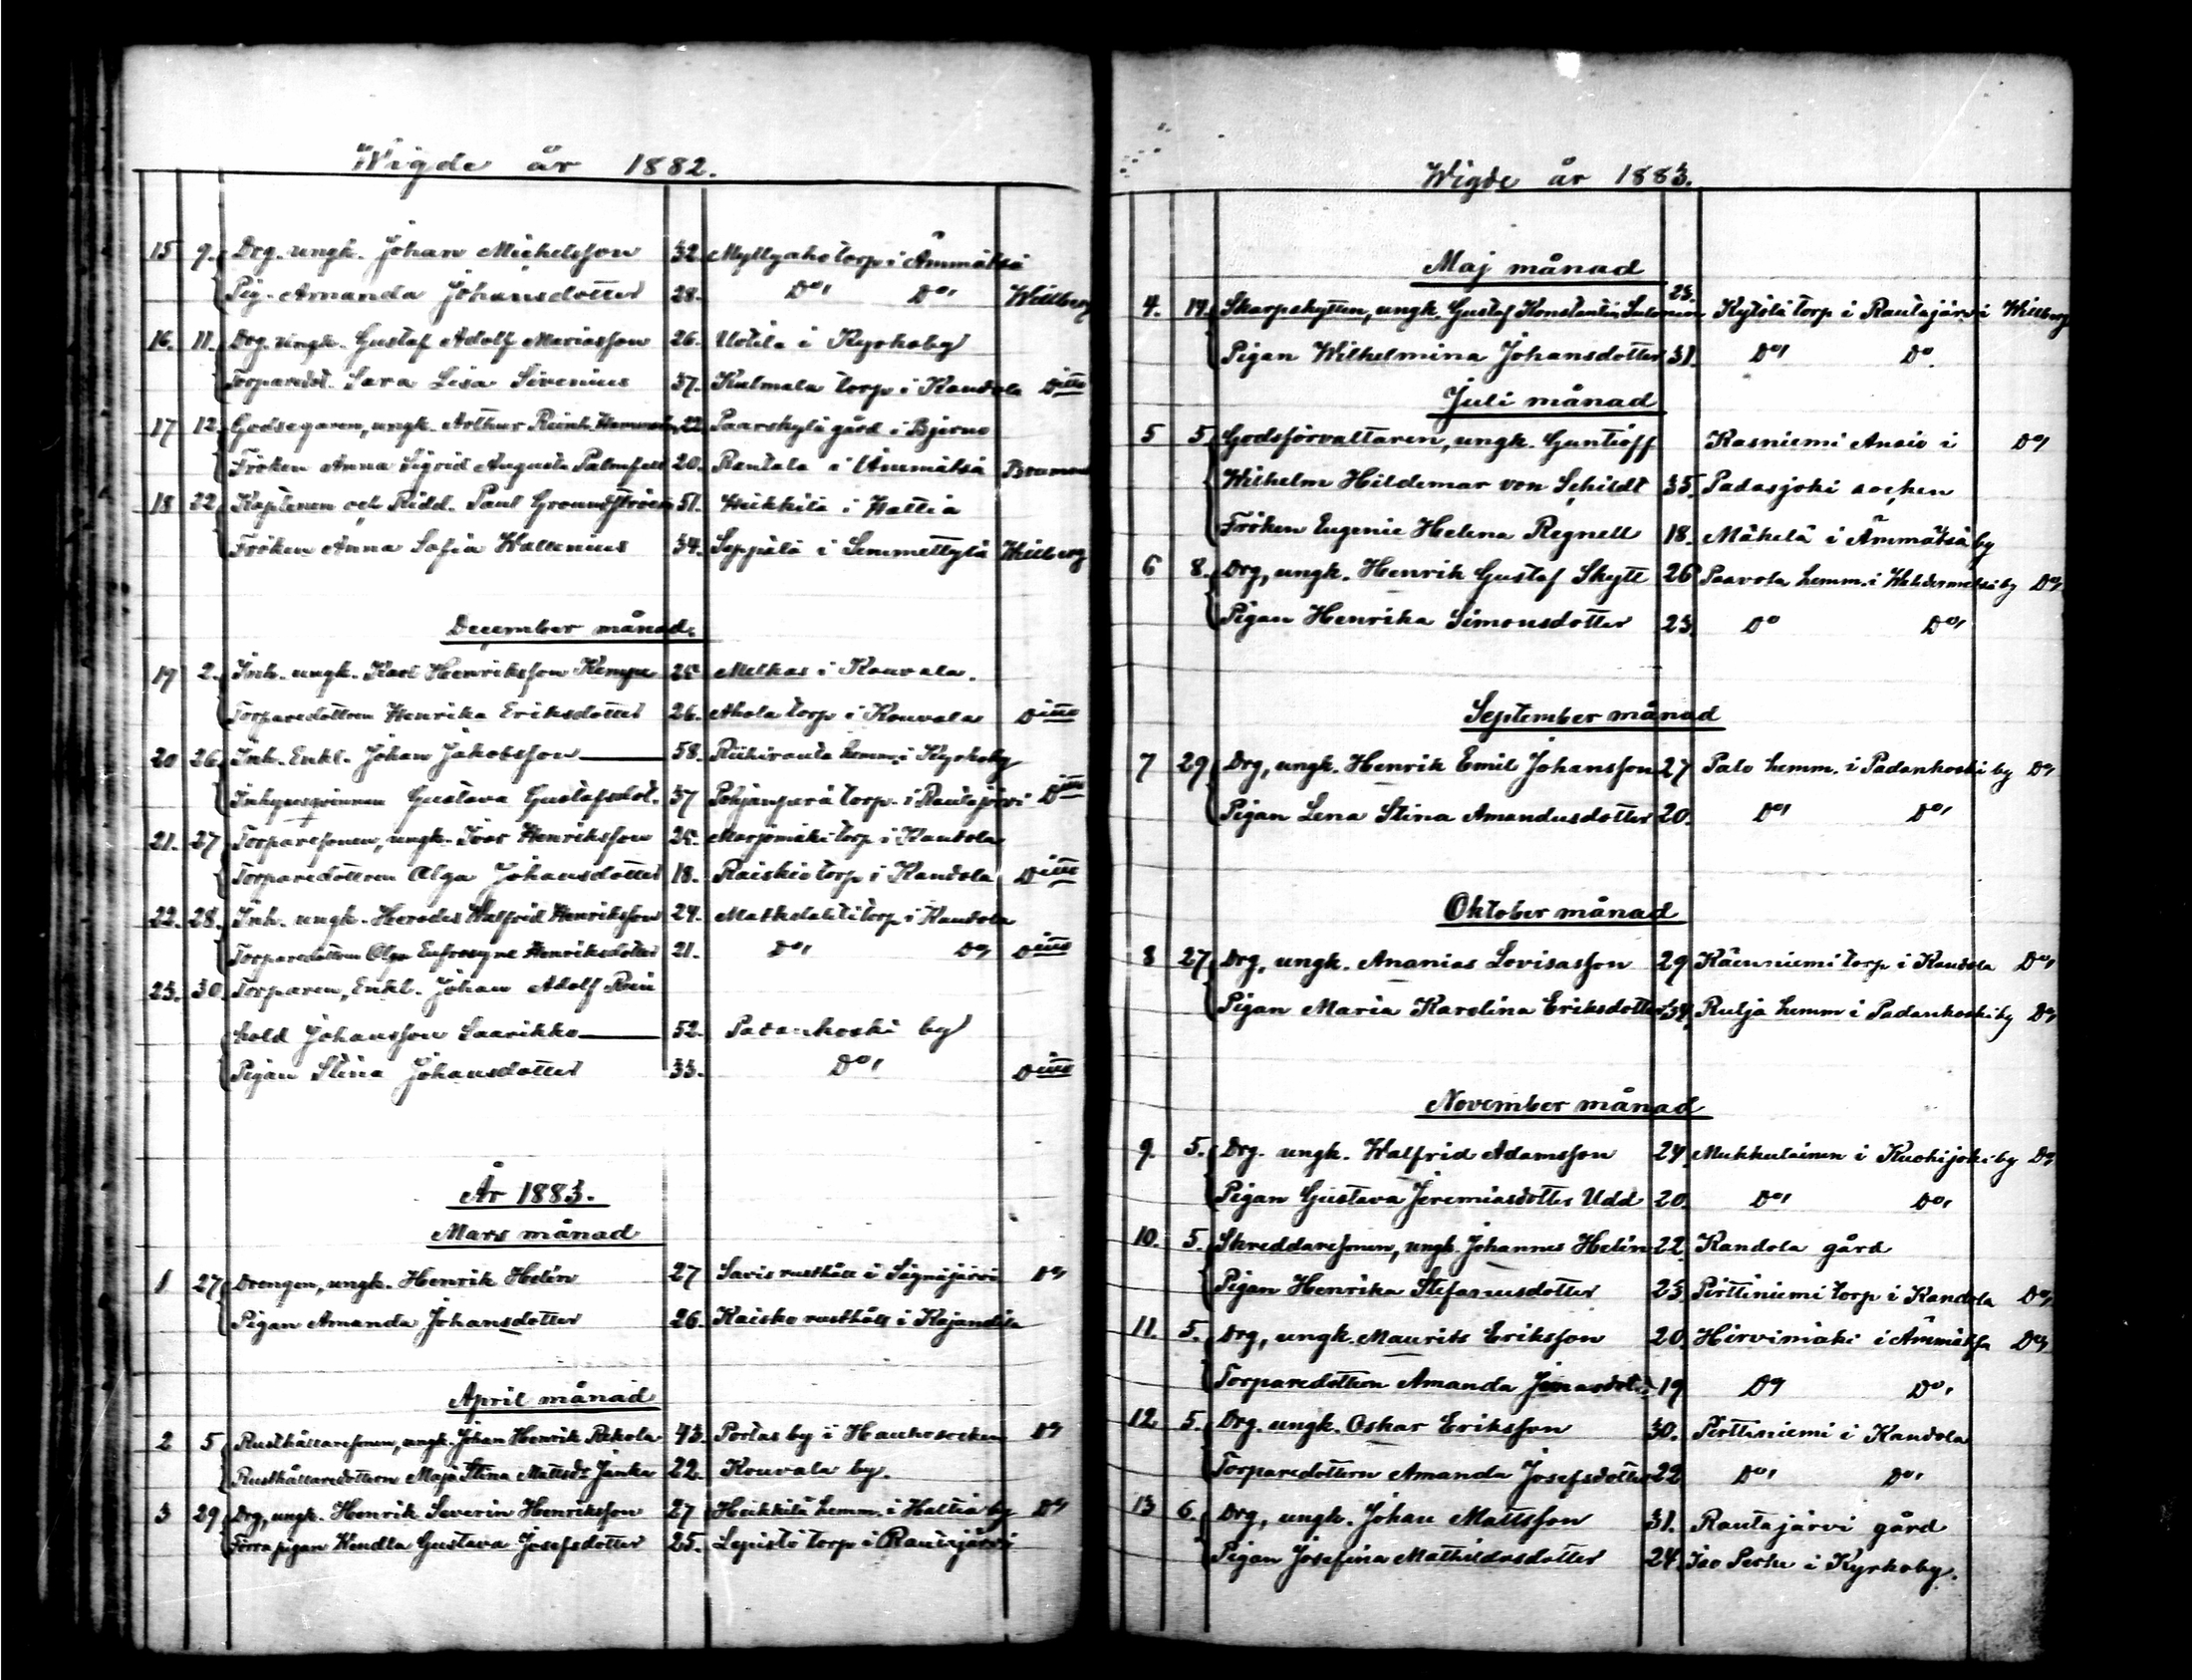 Wigde år 1882.
15 9. Drg. ungk. Johan Michelsson 32. Myllyaho torp i Ämmätsä
Pig. Amanda Johansdotter 28. Do, Do, Willberg
16. 11. Drg. ungk. Gustaf Adolf Mariasson 26. Uotila i Kyrkoby
Torparedot. Sara Lisa Sivenius 37. Kulmala torp i Kandola Ditto
17 12. Godsegaren, ungk. Arthur Reinh. 22. Paarskylä gård i Bjerno
Fröken Anna Sigrid Augusta Palmfelt 20. Rantala i Ämmätsä
18 22. Kaptenen och Ridd. Paul Groundström 51. Heikkilä i Haltia
Fröken Anna Sofia Wallenius 34. Seppälä i Lemmettylä Willberg
December månad.
19 2. Inh. ungk. Karl Henriksson Kempe 25 Melkas i Kouvala.
Torparedottren Henrika Eriksdotter 26. Ahola torp i Kouvala Ditto
20 26. Inh. Enkl. Johan Jakobsson 58. Riihiranta hemm. i Kyrkoby
Inhysesqvinnan Gustava Gustafsdot. 37 Pohjanperä torp. i Rautajärvi Ditto
21. 27 Torparesonen, ungk. Ivar Henriksson 25. Marjomäki torp i Kandola
Torparedottren Olga Johansdotter 18. Raiskio torp i Kandola Ditto
22. 28. Inh. ungk. Herodes Walfrid Henriksson 24. Matkalahti torp i Kandola
Torparedottren Olga Eufrosyne Henriksdotter 21. Do, Do, Ditto
23. 30. Torparen, Enkl. Johan Adolf Rein
hold Johansson Saarikko 52. Padankoski by
Pigan Stina Johansdotter 33. Do, Ditto
År 1883.
Mars månad
1 27 Drengen, ungk. Henrik Helin 27 Savis rusthåll i Signajärvi Do,
Pigan Amanda Johansdotter 26. Kaisko rusthåll i Kajandila
April månad
2 5 Rusthållaresonen, ungk. Johan Henrik Rekola 43. Portas by i Hauho socken Do,
Rusthållaredottern Maja Stina Mattsdr Janka 22. Kouvala by.
3 29 Drg, ungk. Henrik Severin Henriksson 27 Heikkilä hemm. i Haltia by Do,
Förra pigan Hendla Gustava Josefsdotter 25. Lepistö torp i Rautajärvi
Wigde år 1883.
Maj månad
4. 14. Skarpskytten, ungk. Gustaf Konstantin Salomon 23. Kytölä torp i Rautajärvi Willberg
Pigan Wilhelmina Johansdotter 31. Do, Do.
Juli månad
5 5 Godsförvaltaren, ungk. Guntioff Kasniemi Ansio i Do,
Wilhelm Hildemar von Schildt 35. Padasjoki socken
Fröken Eugenie Helena Regnell 18. Mäkelä i Ämmätsä by
6 8. Drg, ungk. Henrik Gustaf Skytt 26 Paavola hemm. i Wehkermetsä by Do,
Pigan Henrika Simonsdotter 23. Do Do,
September månad
7 29 Drg, ungk. Henrik Emil Johansson 27 Palo hemm. i Padankoski by Do,
Pigan Lena Stina Amandusdotter 20. Do, Do,
Oktober månad
8 27 Drg, ungk. Ananias Lovisasson 29 Käenniemi torp i Kandola Do,
Pigan Maria Karolina Eriksdotter 34. Rulja hemm i Padankoski by Do,
November månad
9. 5. Drg. ungk. Walfrid Adamsson 24 Mukkulainen i Kuohijoki by Do,
Pigan Gustava Jeremiasdotter Udd 20. Do, Do,
10. 5. Skreddaresonen, ungk. Johannes Helin 22 Kandola gård
Pigan Henrika Stefanusdotter 23. Pirttiniemi torp i Kandola Do,
11. 5. Drg, ungk. Maurits Eriksson 20. Hirvimäki i Ämmätsä Do,
Torparedottern Amanda Jonasdot. 19 Do, Do,
12. 5. Drg. ungk. Oskar Eriksson 30. Pirttiniemi i Kandola
Torparedottern Amanda Josefsdotter 22 Do, Do,
13 6. Drg, ungk. Johan Mattsson 31. Rautajärvi gård
Pigan Josefina Mathildasdotter 24. Iso Perhe i Kyrkoby.